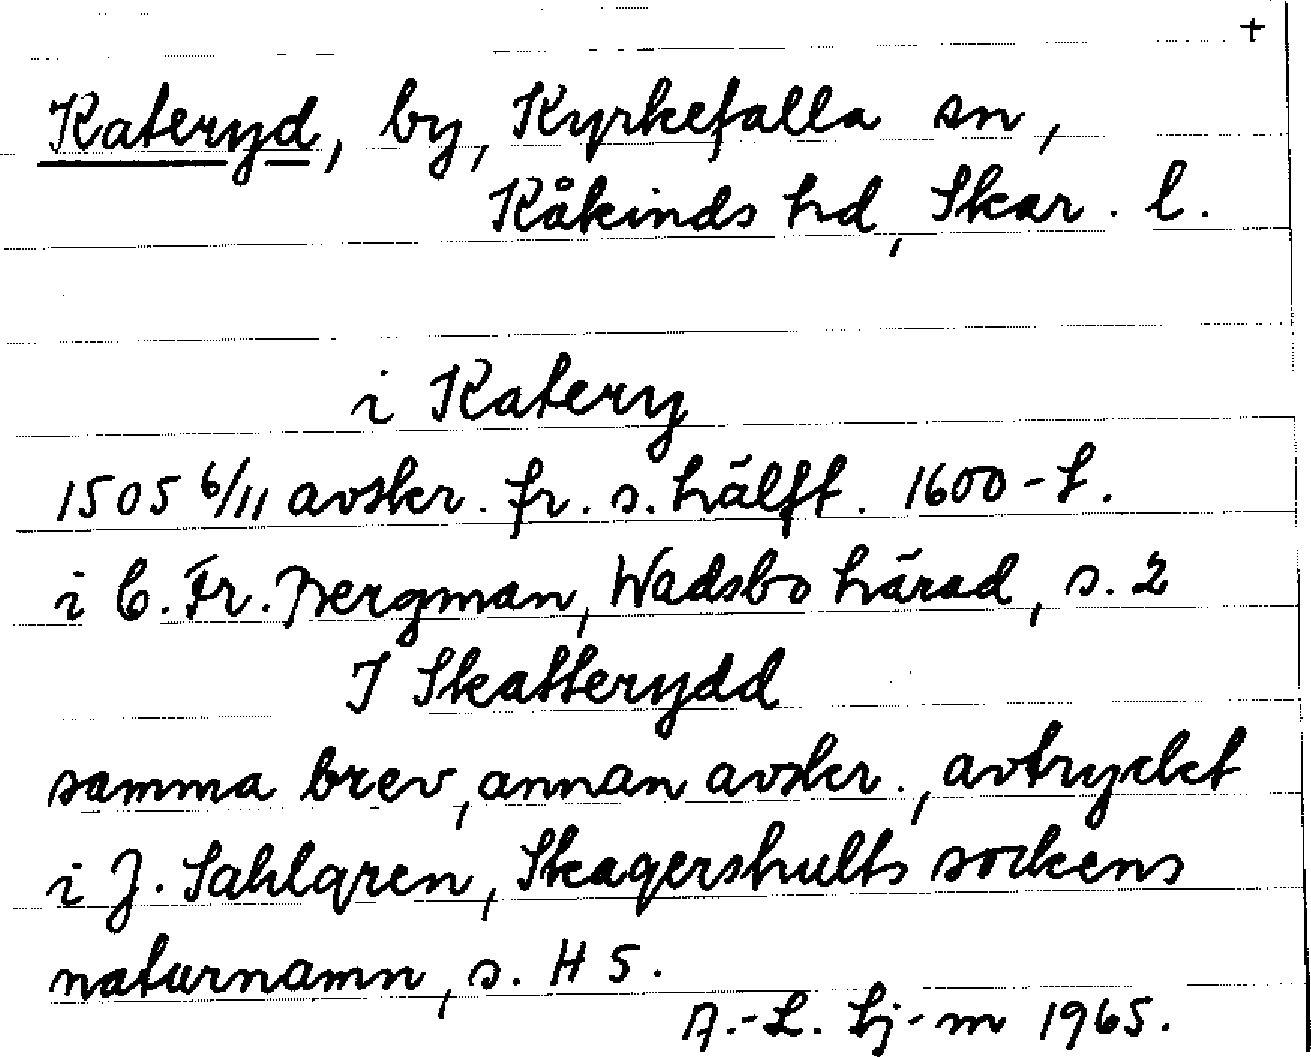 +
Kateryd, by, Kyrkefalla sn,
Kåkinds hd, Skar. l.
i Katery
1505 6/11 avskr. fr. s. hälft. 1600-t.
i C. Fr. Bergman, Wadsbo härad, s. 2
I Skatterydd
samma brev, annan avskr., avtryckt
i J. Sahlgren, Skagershults sockens
naturnamn, s. H 5.
A.-L. Hj-m 1965.